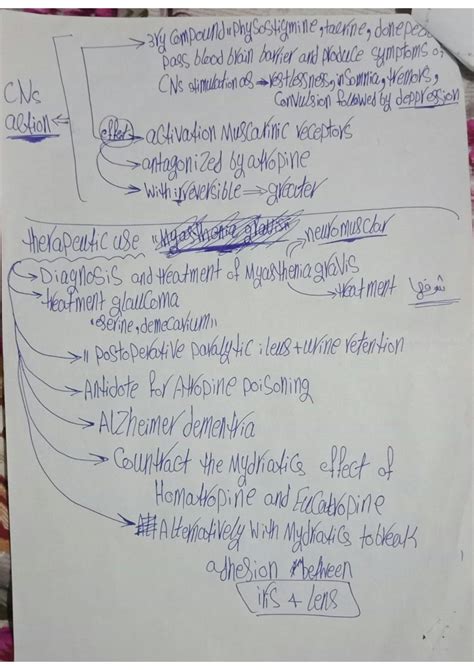 3ry compound "physostigmine, tacrine, donepez
pass blood brain barrier and produce symptoms of
CNs stimulation as → restlessness, insomnia, tremors,
convulsion followed by deppression
CNs
action
effect → activation Muscarinic receptors
→ antagonized by atropine
→ with irreversible ⇒ greater
therapeutic use
→ Diagnosis and treatment of Myasthenia gravis
→ neuromuscular
→ treatment
→ treatment glaucoma
"eserine, demecarium"
→ "postoperative paralytic ileus + urine retention
→ Antidote for Atropine poisoning
→ Alzheimer dementria
→ Countract the Mydriatics effect of
Homatropine and Eucatropine
→ Alternatively with Mydratics to break
adhesion between
iris + lens